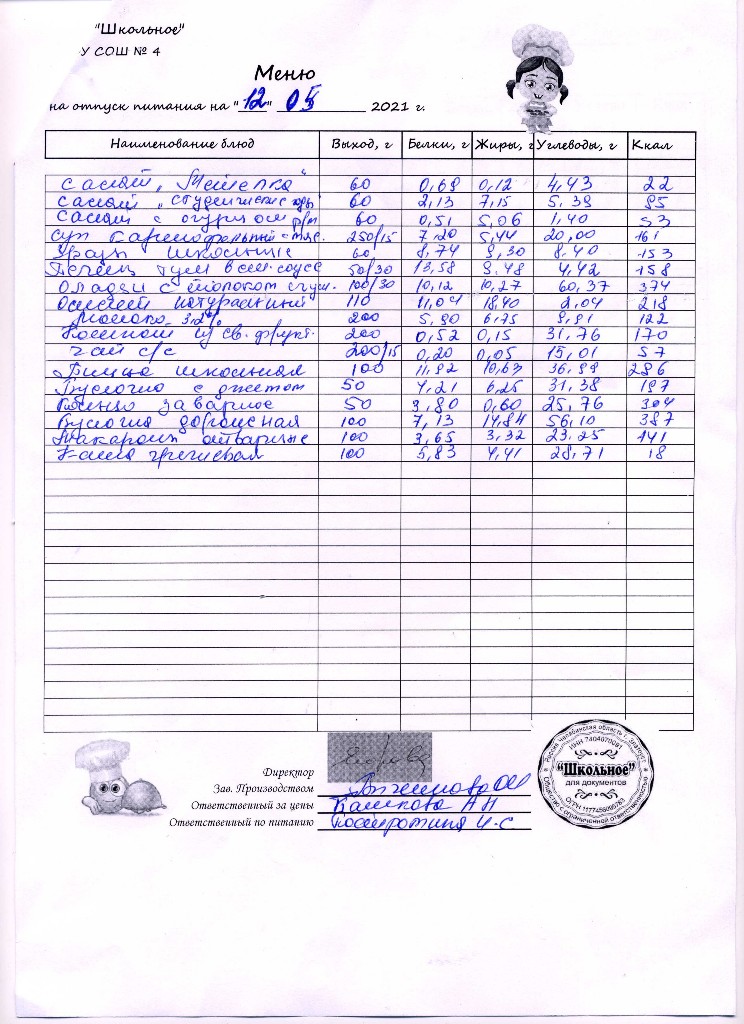 "Школьное"
У СОШ № 4
Меню
на отпуск питания на "12" 05 2021 г.
Наименование блюд Выход, г Белки, г Жиры, г Углеводы, г Ккал
Салат 60 0,68 0,12 4,43 22
Салат "Студенческие 60 2,13 7,15 5,39 95
Салат с 60 0,51 5,06 1,40 53
Суп картофельный с 250/15 7,20 5,44 20,00 161
школьные 60 8,74 9,30 8,40 153
Печень туш в смет. соусе 50/30 13,58 9,48 4,42 158
Оладьи с молоком сгущ. 100/30 10,12 10,27 60,37 374
Омлет натуральный 110 11,04 18,40 2,04 218
Молоко 3,2% 200 5,90 6,75 9,91 122
Компот из св. фрукт. 200 0,52 0,15 31,76 170
Чай с/с 200/15 0,20 0,05 15,01 57
Пицца школьная 100 11,92 10,63 36,99 286
Булочка с джемом 50 4,21 6,25 31,38 197
заварное 50 3,80 0,60 25,76 304
Булочка дорожная 100 7,13 14,84 56,10 387
Макароны отварные 100 3,65 3,32 23,25 141
Каша гречневая 100 5,83 4,41 28,71 18
Директор
Зав. Производством
Ответственный за цены
Ответственный по питанию
Россия Челябинская область г. Златоуст
ИНН 7404070091
"Школьное"
для документов
Общество с ограниченной ответственностью